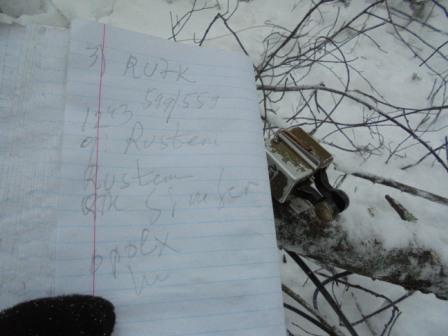 3) RU7K
1243 599/559
op. Rustem
Rustem
QTH Simfer
opolx